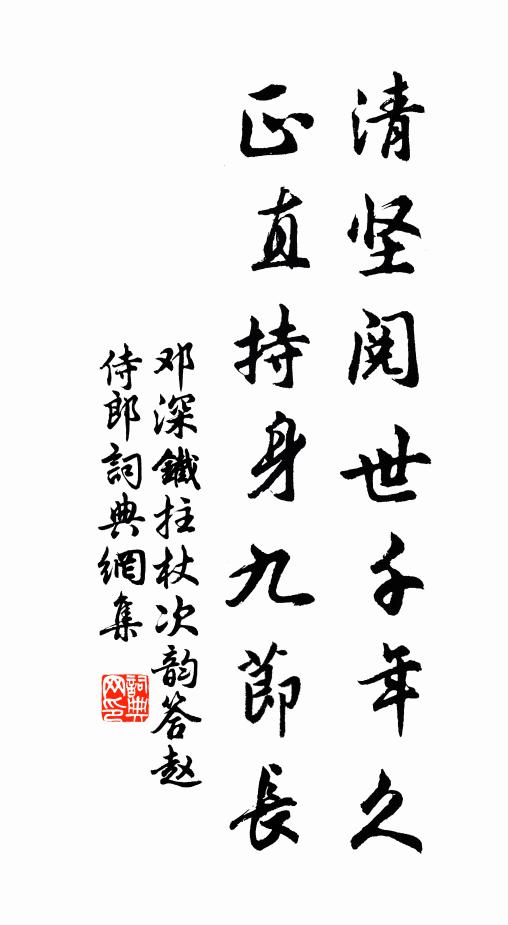 清坚阅世千年久
正直持身九節長
邓深鐵拄杖次韵答赵
侍郎詞典網集
詞典网印